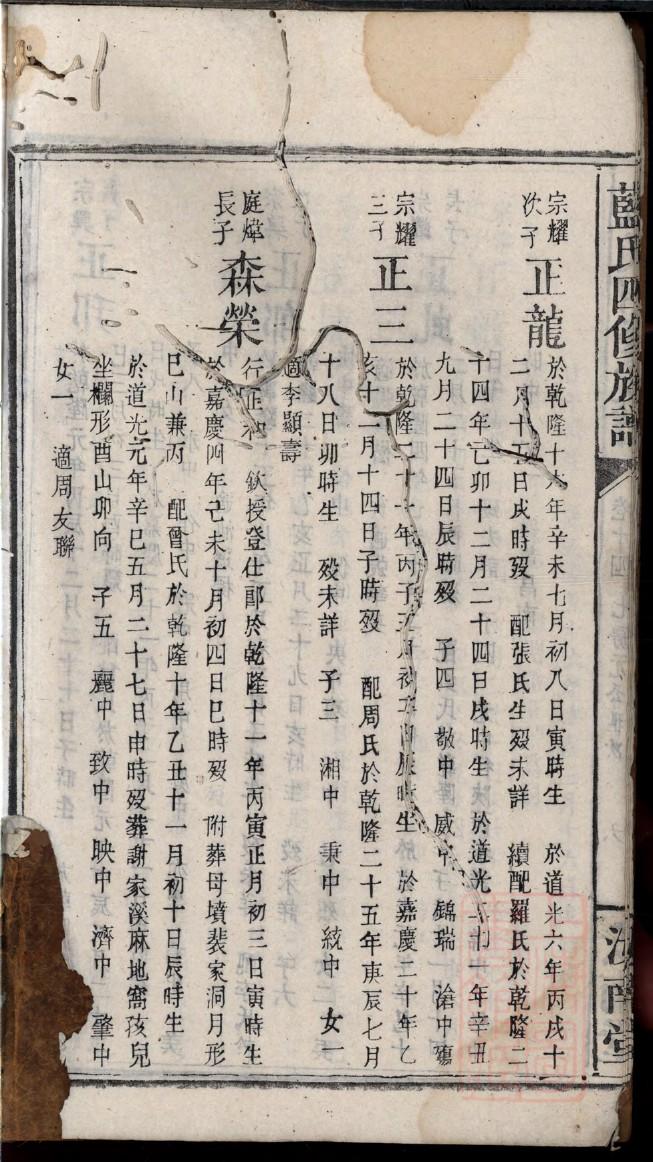 藍氏四修族譜
汝南堂
宗耀
次子
正龍
於乾隆十六年辛未七月初八日寅時生 於道光六年丙戌十
二月十五日戌時歿 配張氏生歿未詳 續配羅氏於乾隆二
十四年己卯十二月二十四日戌時生 於道光二十一年辛丑
九月二十四日辰時歿 子四 敬中 威中 錦瑞 滄中殤
宗耀
三子
正三
於乾隆二十一年丙子五月初五日辰時生 於嘉慶二十年乙
亥十二月十四日子時歿 配周氏於乾隆二十五年庚辰七月
十八日卯時生 歿未詳 子三 湘中 秉中 統中 女一
適李顯壽
庭煒
長子
森榮
行正和 欽授登仕郎於乾隆十一年丙寅正月初三日寅時生
於嘉慶四年己未十月初四日巳時歿 附葬母墳裴家洞月形
巳山兼丙 配曾氏於乾隆十年乙丑十一月初十日辰時生
於道光元年辛巳五月二十七日申時歿葬謝家溪麻地窩孩兒
坐欄形酉山卯向 子五 麗中 致中 映中 濟中 肇中
女一 適周友聯